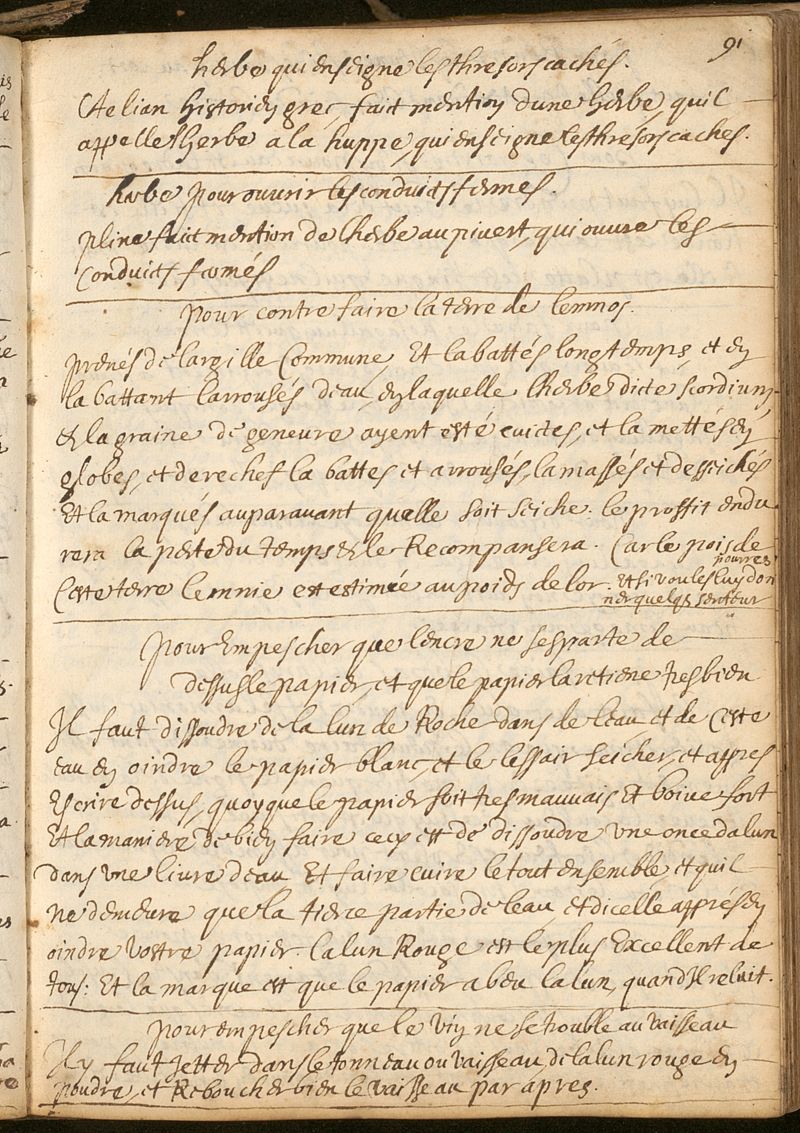 91
herbe qui enseigne les thresors cachés.
Aelian historien grec, fait mention dune herbe quil
appelle lherbe a la huppe, qui enseigne les thresors caches.
herbe pour ouvrir les conduits fermes.
pline fait mention de lherbe au pivert, qui ouvre les
conduits fermés
pour contrefaire la terre de lemnos.
prenés de largille commune, Et la battés longtemps, et en
la battant larrousés deau, en laquelle lherbe dicte scordium,
et la graine de genevre ayent esté cuites, et la mettés en
globes, et derechef la battes et arrousés, lamassés et desseichés
Et la marqués auparavant quelle soit seiche. le proffit endu
rera la perte du temps et le Recompansera. Car le pois de
Ceste terre lemnie est estimée au poids de lor. Et si voules luy don
pourres
ner quelque senteur
pour Empescher que lencre ne sesparte de
dessus le papier, et que le papier la retiene tres bien
Il faut dissoudre de lalun de Roche dans de leau, et de Ceste
eau en oindre le papier blanc, et le lessair seicher, et appres
Escrire dessus, quoyque le papier soit tres mauvais Et boive fort
Et la maniere de bien faire cecy est de dissoudre une once dalun
dans une livre deau Et faire cuire le tout ensemble, et quil
ne demeure que la tierce partie de leau, et dicelle apprés en
oindre vostre papier. lalun Rouge est le plus Excellent de
tous: Et la marque est que le papier a beu lalun, quand Il reluit.
pour empescher que le vin ne se trouble au vaisseau
Il y faut Jetter dans le tonneau ou vaisseau, de lalun rouge en
poudre, et Reboucher bien le vaisseau par apres.